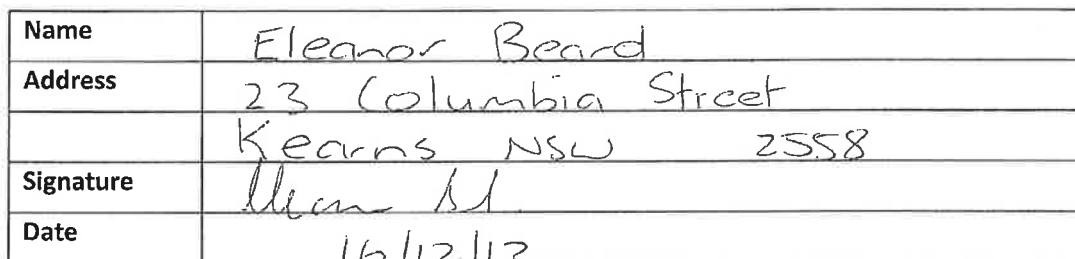 Name Eleanor Beard
Address 23 Columbia Street
Kearns NSW 2558
Signature
Date 16/12/12